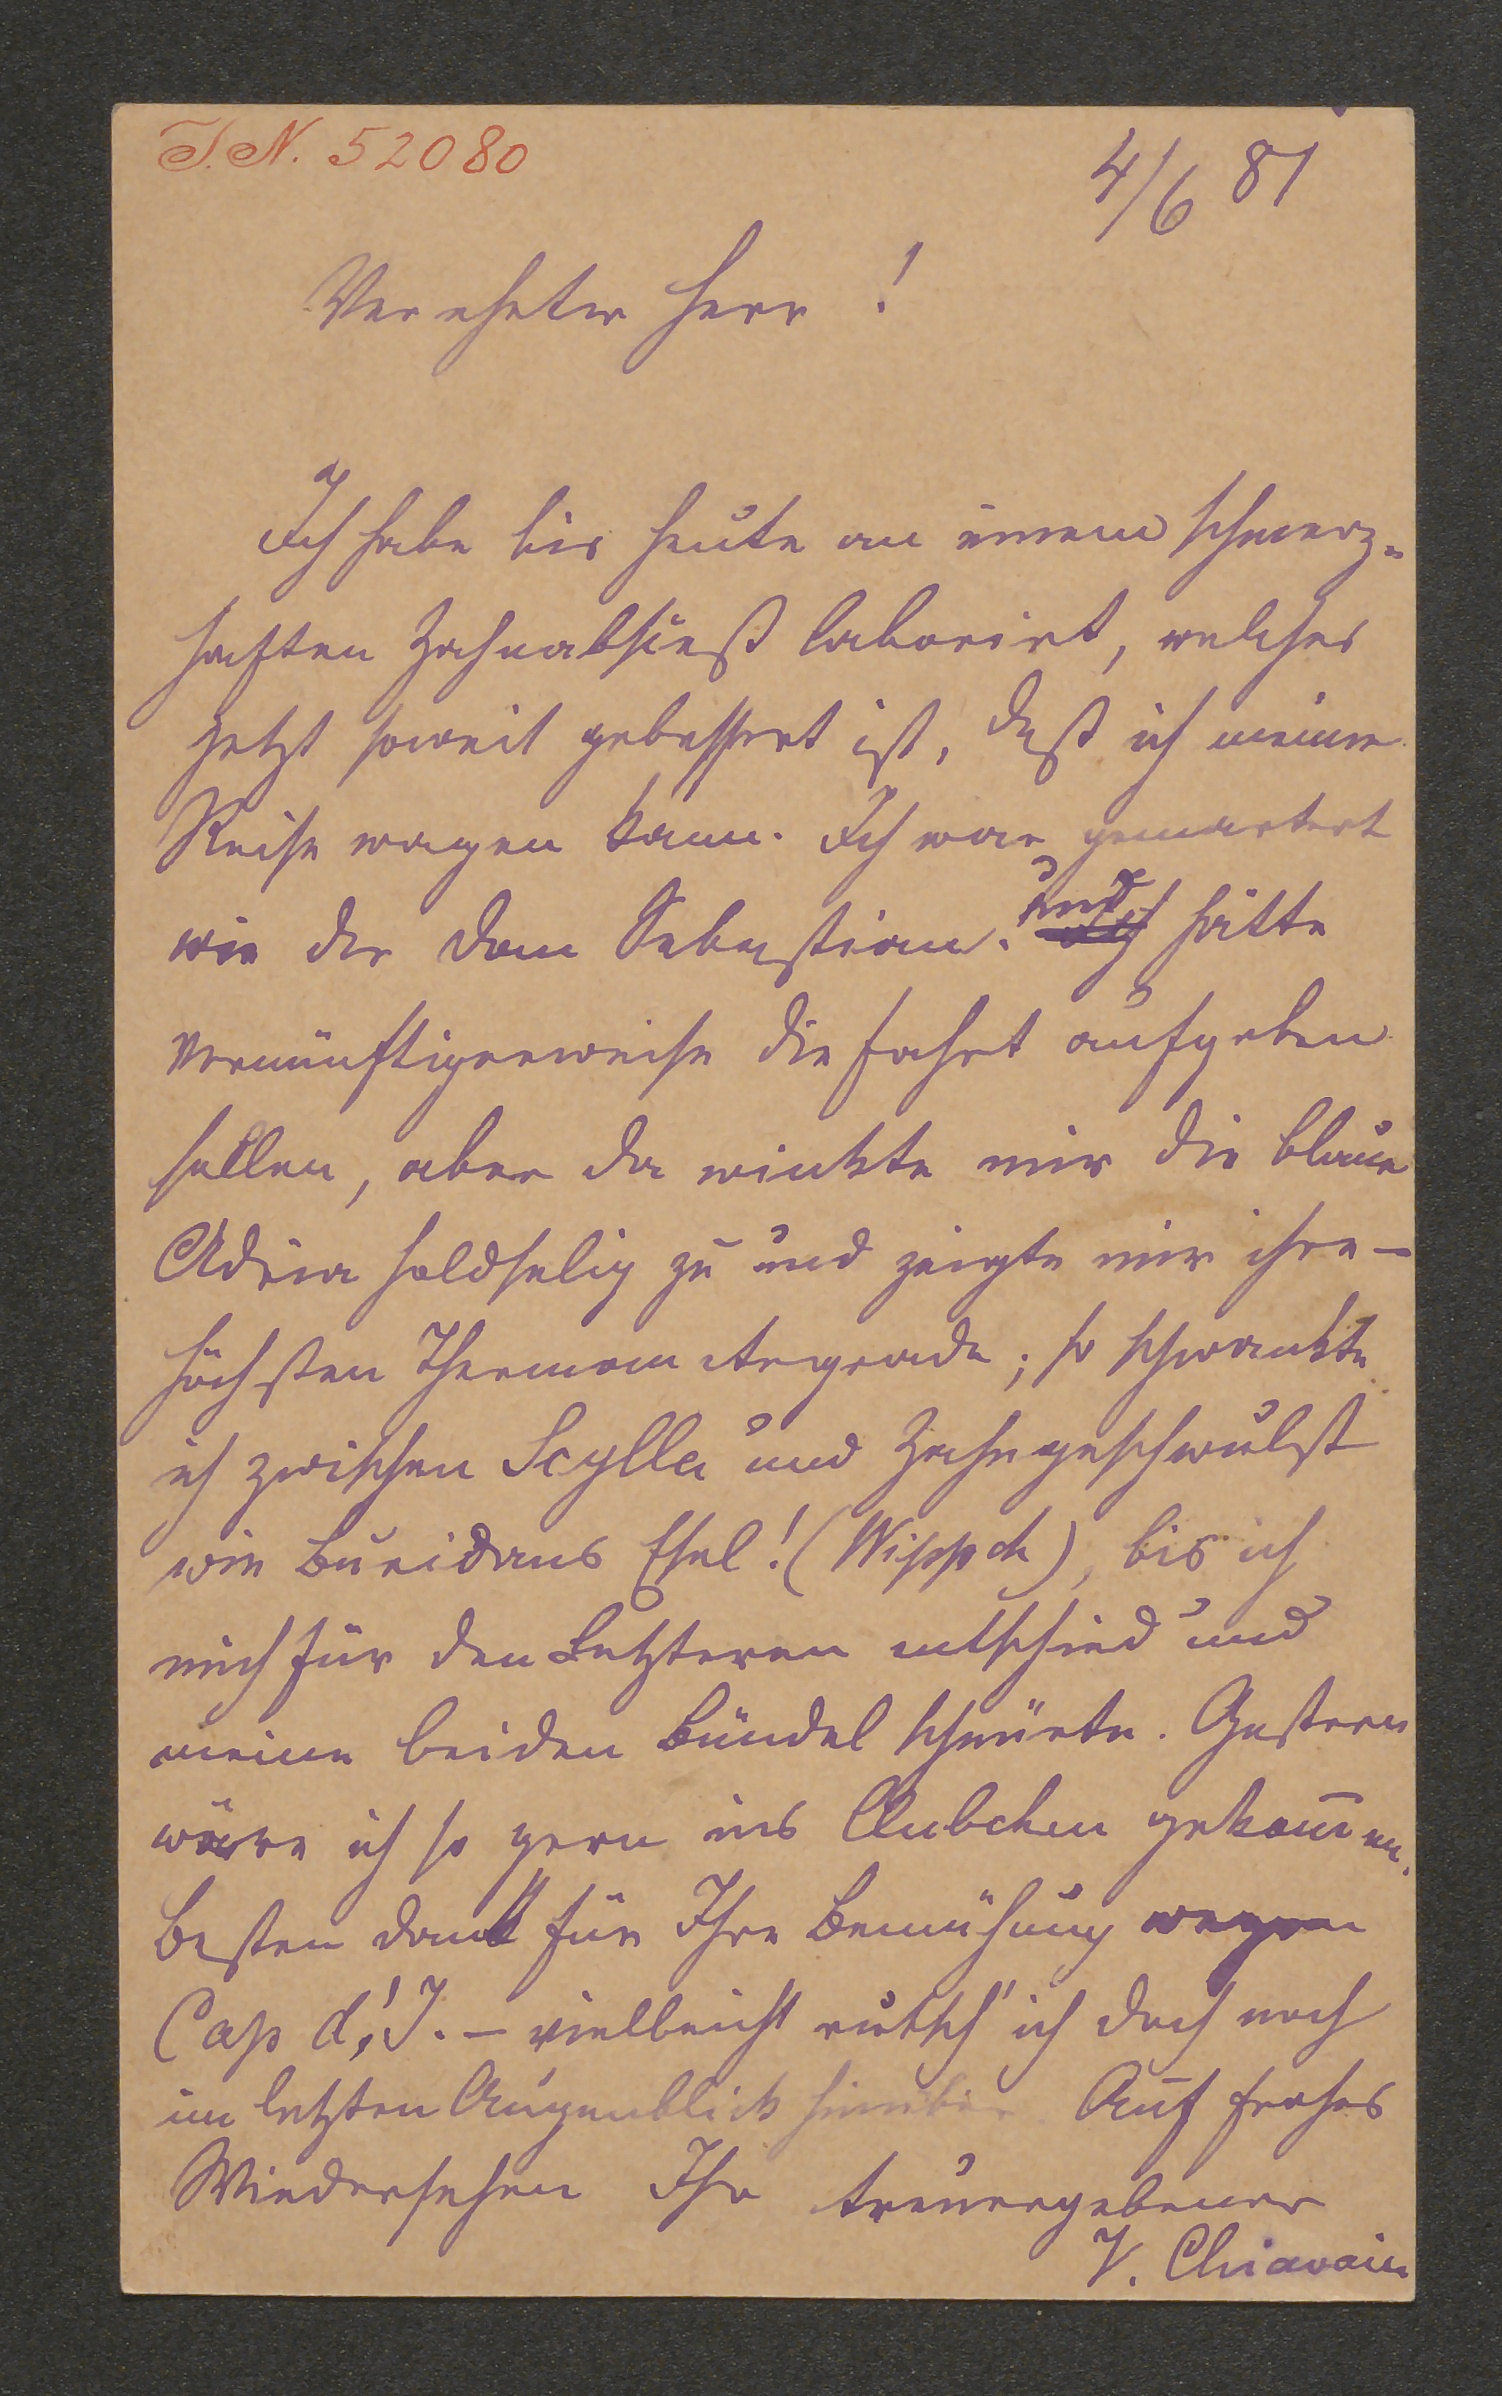 I.N. 52080
4/6 81
Verehrter Herr!
Ich habe bis heute an einem schmerz-
haften Zahnabsceß laborirt, welches
jetzt soweit gebessert ist, daß ich meine
Reise wagen kann. Ich war gemartert
wie der Dom Sebastian! und hätte
vernünftigerweise die Fahrt aufgeben
sollen, aber da winkte mir die blaue
Adria holdselig zu und zeigte mir ihre –
höchsten Thermometergrade; so schwankte
ich zwischen Scylla und Zahngeschwulst
wie Buridans Esel! (Wippch), bis ich
mich für den Letzteren entschied und
meine beiden Bündel schnürte. Gestern
wäre ich so gern ins Clubchen gekom̅en.
Besten Dank für Ihre Bemühung wegen
Cap d'I. – vielleicht rutsch' ich doch noch
im letzten Augenblick hinüber Auf frohes
Wiedersehen Ihr treuergebener
V. Chiavacci